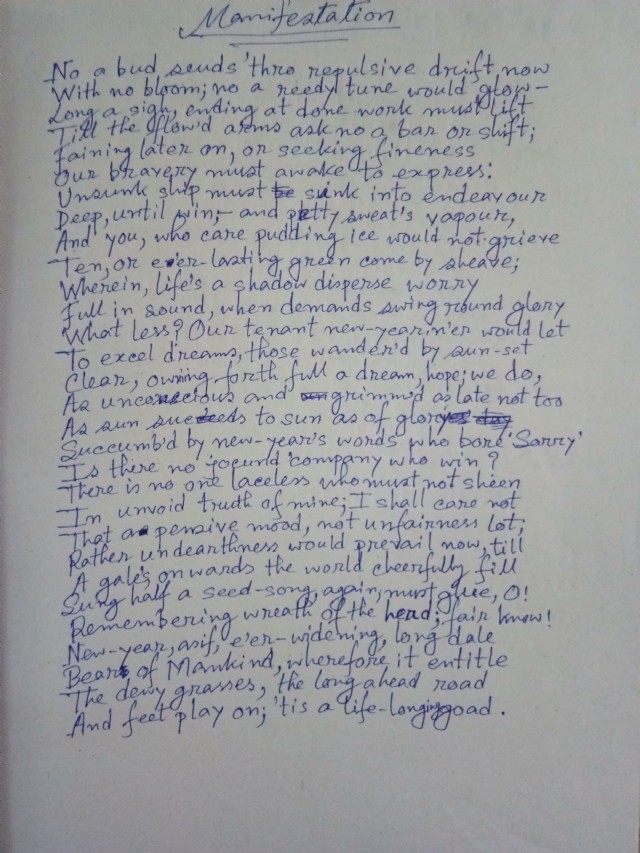 Manifestation
No a bud, scuds 'thro repulsive drift now
With no bloom; no a reedy tune would glow -
Long a sigh, ending at done work must lift
Till the flow'd arms ask no a bar or shift;
Faining later on, or seeking fineness
Our bravery must awake to express:
Unsunk ship must sink into endeavour
Deep, until win; - and petty sweat's vapour,
And you, who care pudding ice would not grieve
Ten, or e'er-lasting green come by sheave;
Wherein, life's a shadow disperse worry
Full in sound, when demands swing round glory
What less? Our tenant new-year, n'er would let
To excel dreams, those wander'd by sun-set
Clear, owning forth full a dream, hope; we do,
As unconscious and grimm'd as late not too
As sun succeeds to sun as of glory
Succumb'd by new-year's words who bore 'Sorry'
Is there no jocund company who win?
There is no one laceless who must not sheen
In unvoid truth of mine; I shall care not
That a pensive mood, not unfairness lot;
Rather undearthness would prevail now, till
A gale's onwards the world cheerfully fill
Sung half a seed-song, again, must glue, O!
Remembering wreath of the head; fair know!
New-year, asif, e'er-widening, long dale
Bears of Mankind, wherefore it entitle
The dewy grasses, the long ahead road
And feet play on; 'tis a life-longing goad.